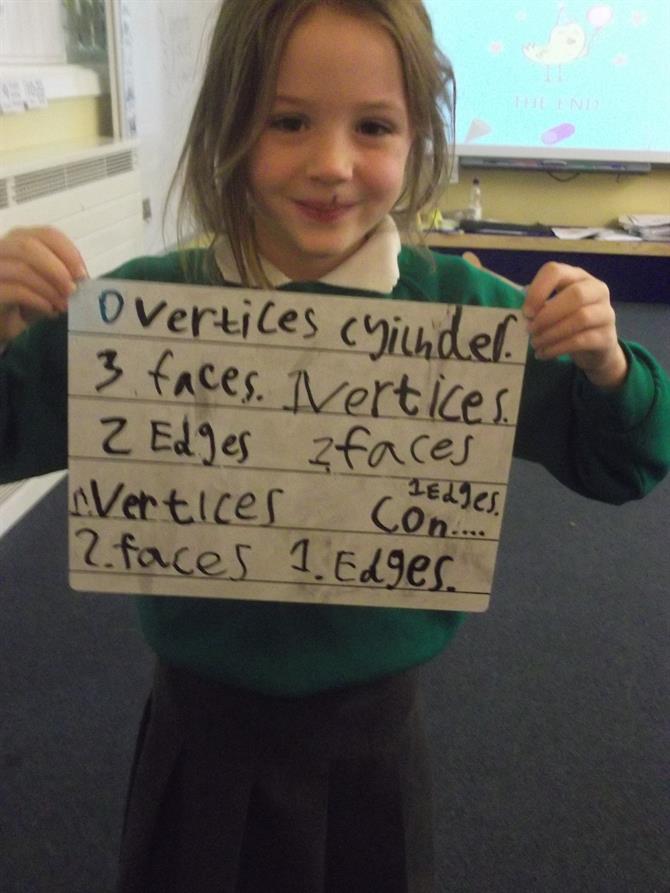 THE END
0 vertices cyiinder.
3 faces. 1 Vertices.
2 Edges 2 faces
1 Edges.
1. Vertices Con....
2. faces 1. Edges.